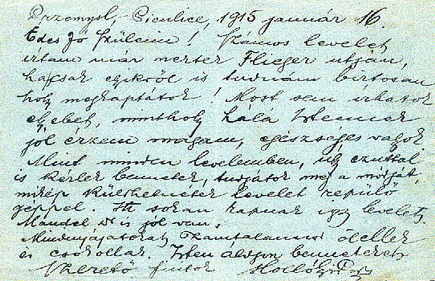 Przemysl, Siculice, 1915 január 16.
Édes Jó Szüleim! Számos levelet
irtam már nektek Flieger utján,
hacsak egikről is tudnám biztosan
hogy megkaptátok! Most sem irhatok
egyebet, minthogy hála Istennek
jól érzem magam, egészséges vagyok
Mint minden levelemben, úgy ezuttal
is kérlek benneteket, tudjátok meg a módját,
mikép küldhetnétek levelet repülő
géppel. Itt sokan kapnak igy levelet.
Mandel is jól van.
Mindnyájatokat számtalanszor ölellek
és csókollak. Isten áldjon benneteket
Szerető fiatok